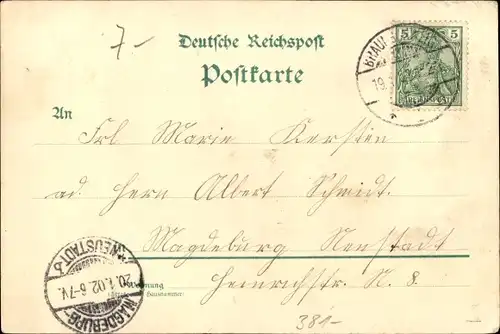 7-
Deutsche Reichspost
Postkarte
5 5
19.
An
Frl Marie Kersten
ad. Herrn Albert Schmidt.
Magdeburg Neustadt
Heinrichstr. N. 8.
Wohnung
MAGDEBURG-NEUSTADT
20.1.02.6-7V.
381-